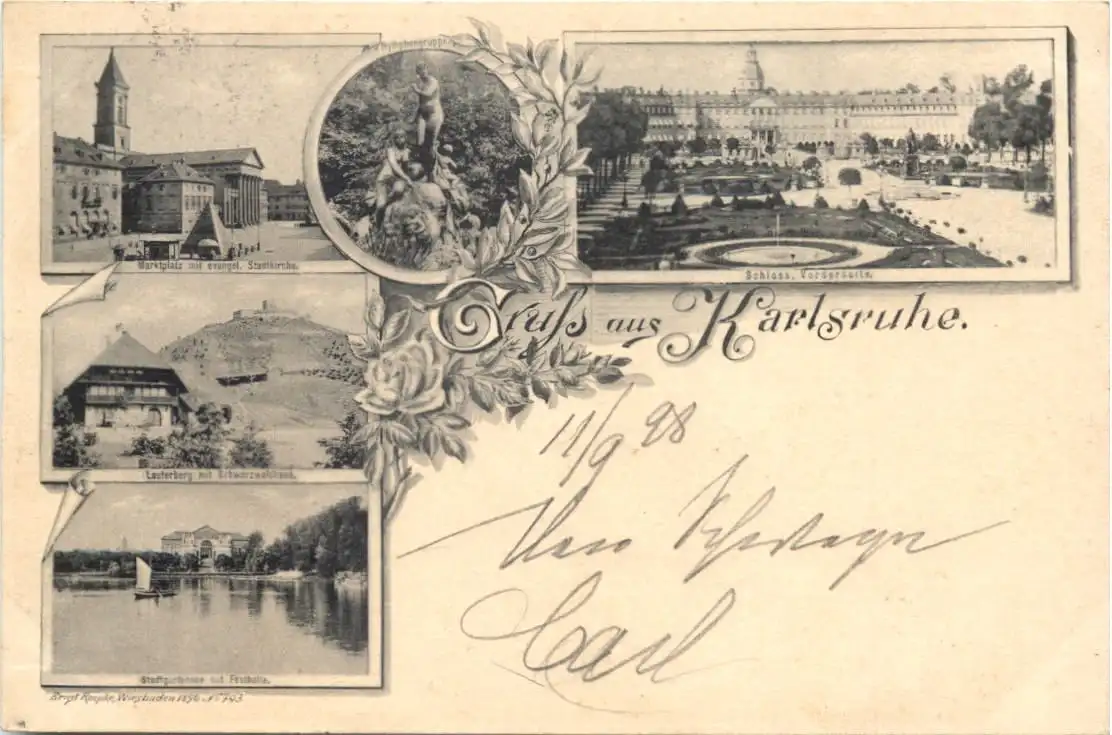 Nymphengruppe.
Marktplatz mit evangel. Stadtkirche.
Schloss, Vorderseite.
Gruß aus Karlsruhe.
11/9 98
Lauterberg mit Schwarzwaldhaus.
Carl
Stadtgartensee mit Festhalle.
Wiesbaden 1896 No 793